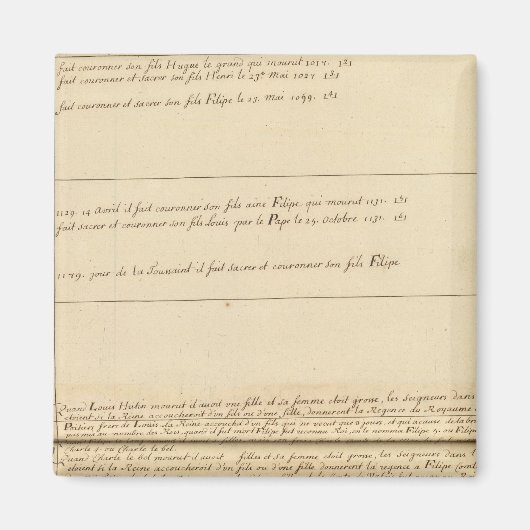 fait couronner son fils Hugue le grand qui mourut 1017. [2]
fait couronner et sacrer son fils Henri le 23e Mai 1027 [3]
fait couronner et sacrer son fils Filipe le 23. Mai 1059. [4]
1129. 14 Avril il fait couronner son fils ainé Filipe qui mourut 1131. [5]
fait sacrer et couronner son fils Louis par le Pape le 25. Octobre 1131. [6]
1179. jour de la Toussaint il fait sacrer et couronner son fils Filipe
Quand Louis Hutin mourut il avoit une fille et sa femme etoit grosse, les seigneurs dans
etoient si la Reine accoucheroit d'un fils ou d'une fille, donnerent la Regence du Royaume
Poitiers frere de Louis la Reine accoucha d'un fils qui ne vecut que 8 jours, et qui acause de la
pas mis au nombre des Rois, quand il fut mort Filipe fut reconnu Roi, on le nomma Filipe 5. ou Filipe
Charle 4. ou Charle le bel.
Quand Charle le bel mourut il avoit filles et sa femme etoit grosse, les seigneurs dans
etoient si la Reine accoucheroit d'un fils ou d'une fille donnerent la regence a Filipe